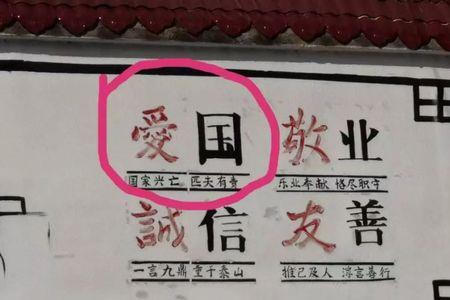 愛国 敬业
国家兴亡 匹夫有责 乐业奉献 恪尽职守
誠信 友善
一言九鼎 重于泰山 推己及人 谆言善行